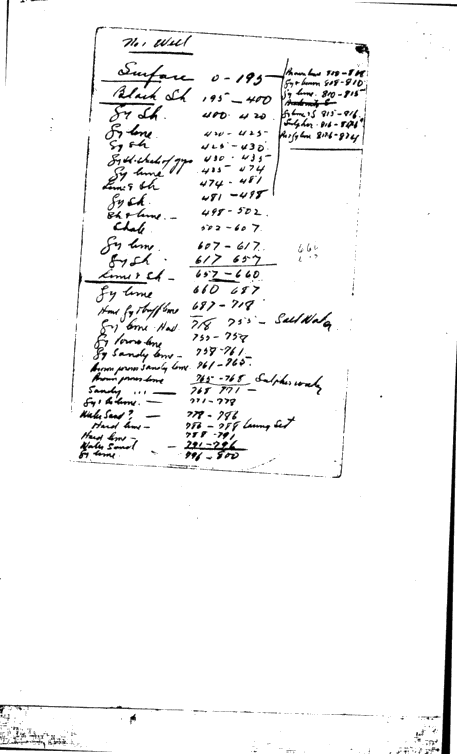 No. 1 Well
Surface 0-195
Black Sh 195-400
Gy Sh. 400 420
Gy lime. 420-425
Gy sh 425-430
Gy sh. chalk of gyp 430-435
Gy lime 435-474
Lime & Sh 474-481
Gy Sh. 481-498
Sh & lime. - 498-502.
Shale 502-607
Gy lime. 607-617.
Gy Sh 617 657
Lime & Sh - 657-660
Gy lime 660 687
Gy & buff lime 687-718
Gy lime Hard 718 755 - Salt Water
Gy lime 755-758
Gy Sandy lime - 758-761
Brown porous Sandy lime 761-765.
Brown porous lime 765-768 Sulphur water
Sandy " " - 768 771 -
Gy & lime. - 771-778
Water Sand? - 778-786
Hard lime - 786-788 Casing Set
Hard lime - 788-791
Water Sand - 791-796
Gy lime. 796-800
Brown lime
Gy & brown 808-810
Gy lime. 810-815
Gy lime & S 815-816
Sulphur. 816-
Gy lime 824